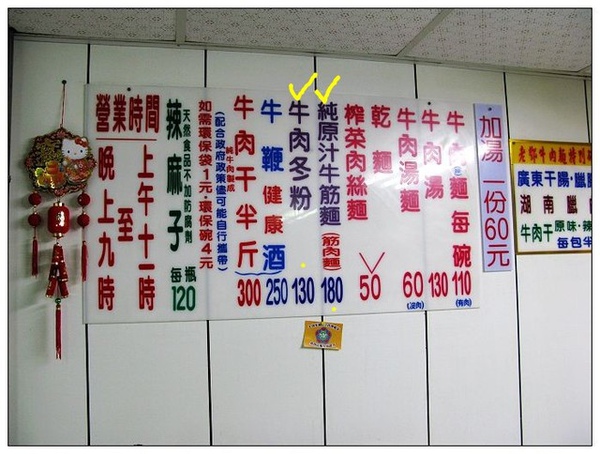 加湯一份60元
牛肉麵每碗110
(有肉)
牛肉湯130
牛肉湯麵60
(沒肉)
乾麵
榨菜肉絲麵
50
純原汁牛筋麵180
(筋肉麵)
牛肉冬粉130
牛鞭健康酒250
牛肉干半斤300
純牛肉製成
(配合政府政策儘可能自行攜帶)
如需環保袋1元,環保碗4元
辣麻子每瓶120
天然食品不加防腐劑
營業時間
上午十一時
至
晚上九時
老鄧牛肉麵特別
廣東干腸,臘
湖南臘
牛肉干原味,辣
每包半